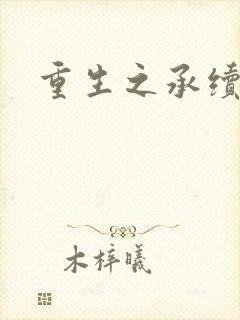 重生之承续
木梓曦